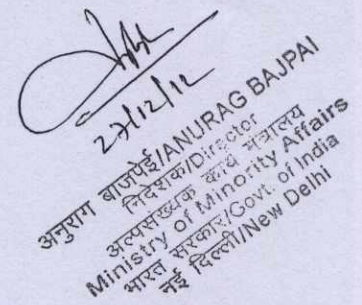 27/12/12
अनुराग बाजपेई/ANURAG BAJPAI
निदेशक/Director
अल्पसंख्यक कार्य मंत्रालय
Ministry of Minority Affairs
भारत सरकार/Govt. of India
नई दिल्ली/New Delhi